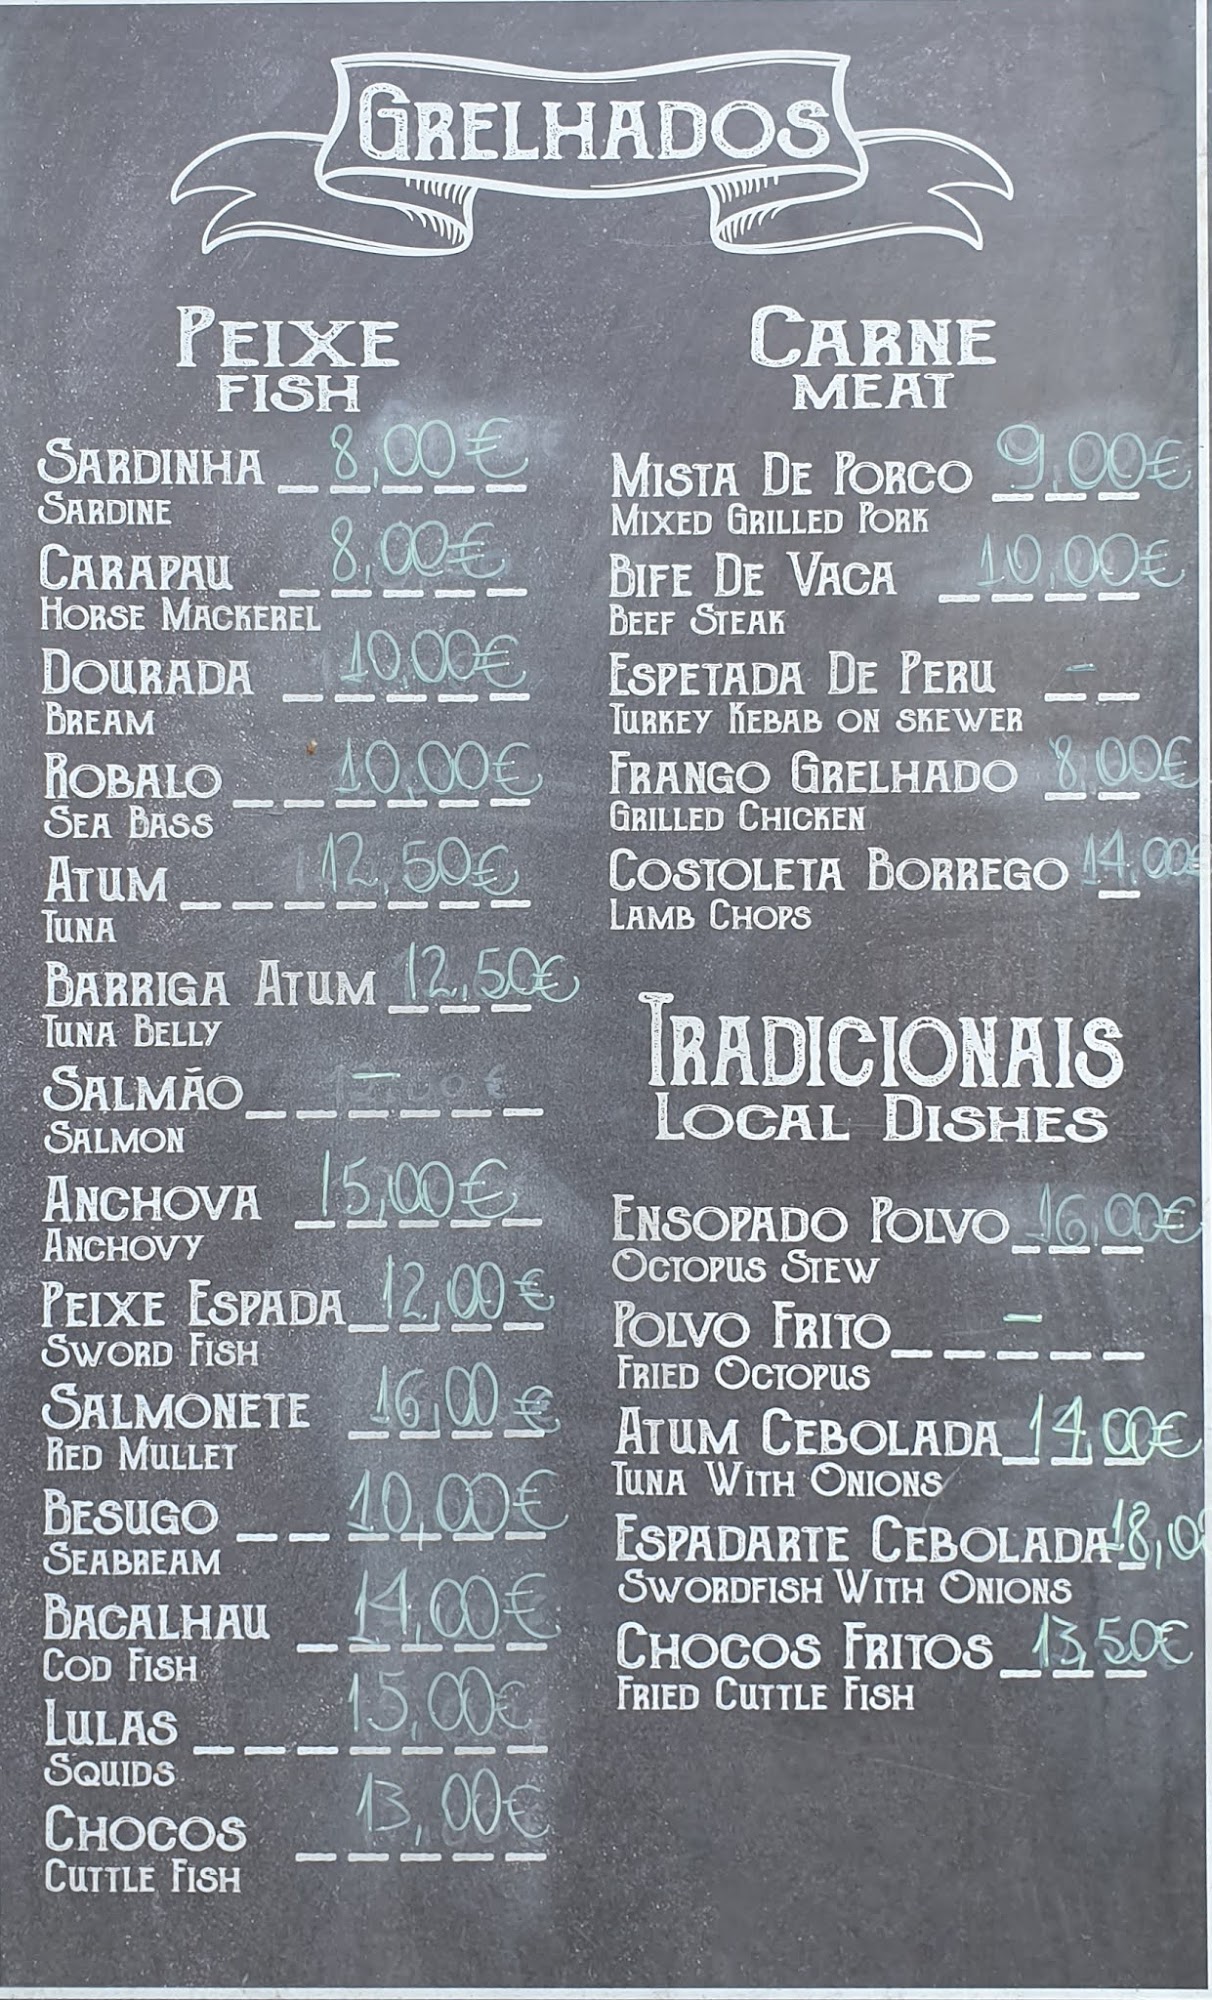 GRELHADOS
PEIXE
FISH
SARDINHA 8,00€
SARDINE
CARAPAU 8,00€
HORSE MACKEREL
DOURADA 10,00€
BREAM
ROBALO 10,00€
SEA BASS
ATUM 12,50€
TUNA
BARRIGA ATUM 12,50€
TUNA BELLY
SALMÃO –
SALMON
ANCHOVA 15,00€
ANCHOVY
PEIXE ESPADA 12,00€
SWORD FISH
SALMONETE 16,00€
RED MULLET
BESUGO 10,00€
SEABREAM
BACALHAU 14,00€
COD FISH
LULAS 15,00€
SQUIDS
CHOCOS 13,00€
CUTTLE FISH
CARNE
MEAT
MISTA DE PORCO 9,00€
MIXED GRILLED PORK
BIFE DE VACA 10,00€
BEEF STEAK
ESPETADA DE PERU –
TURKEY KEBAB ON SKEWER
FRANGO GRELHADO 8,00€
GRILLED CHICKEN
COSTOLETA BORREGO 14,00€
LAMB CHOPS
TRADICIONAIS
LOCAL DISHES
ENSOPADO POLVO 16,00€
OCTOPUS STEW
POLVO FRITO –
FRIED OCTOPUS
ATUM CEBOLADA 14,00€
TUNA WITH ONIONS
ESPADARTE CEBOLADA 18,00
SWORDFISH WITH ONIONS
CHOCOS FRITOS 13,50€
FRIED CUTTLE FISH